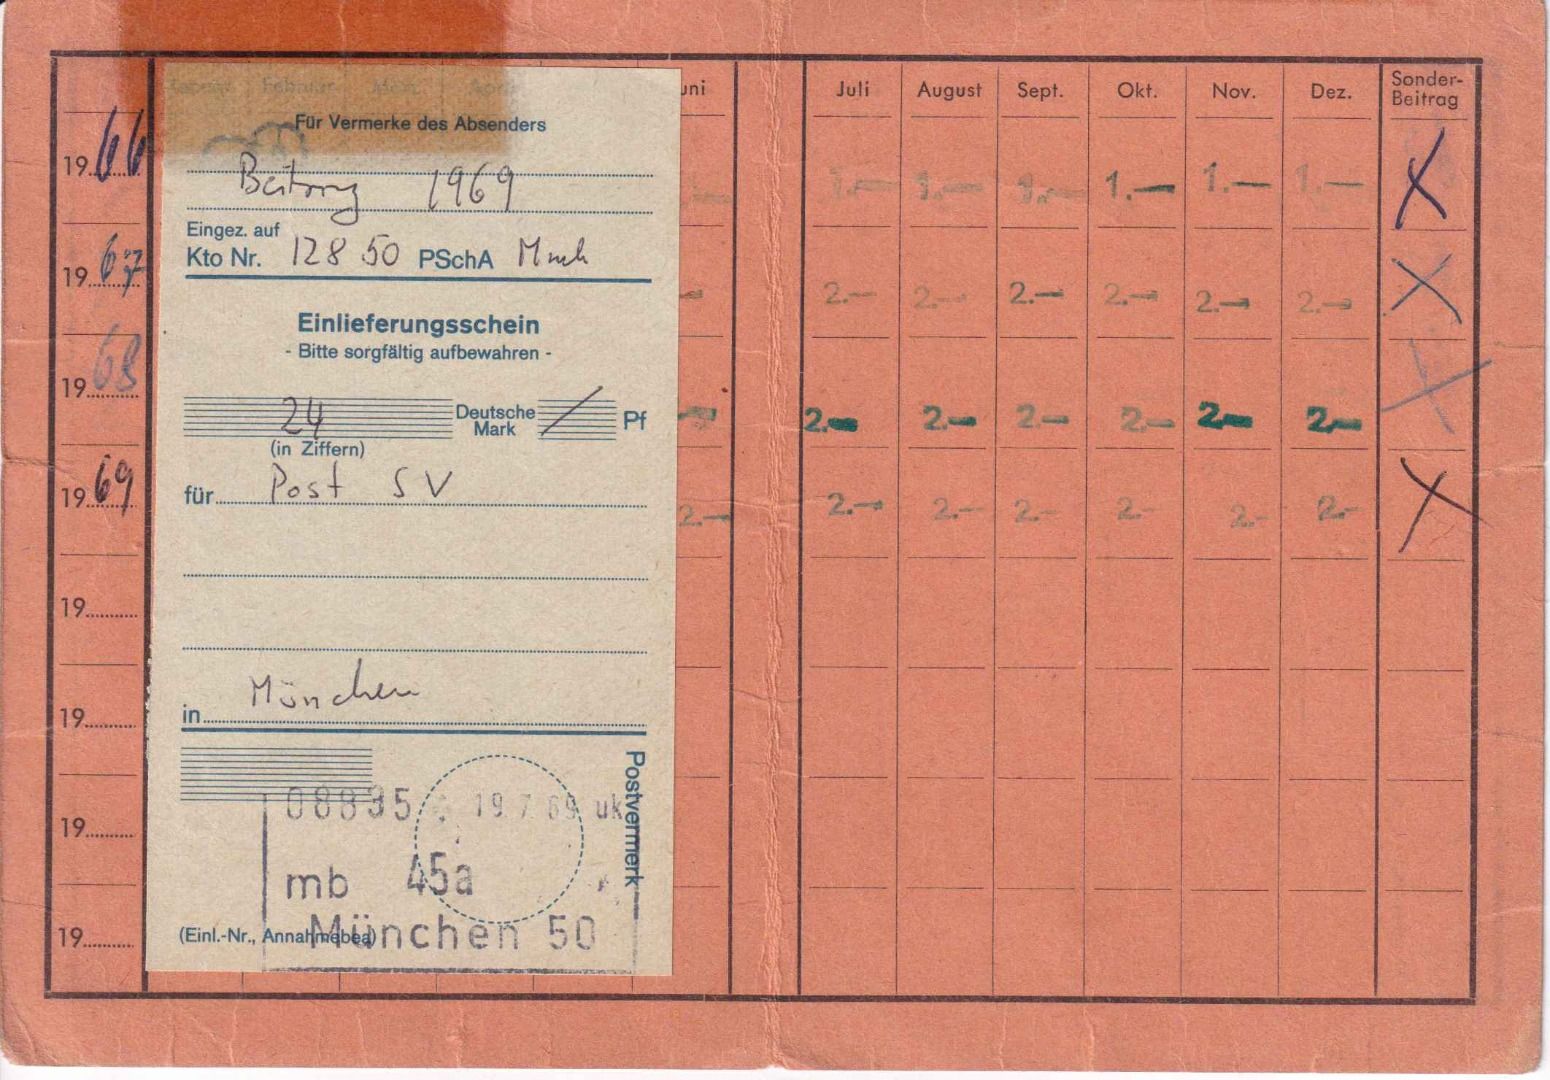 Januar Februar März April Juni Juli August Sept. Okt. Nov. Dez. Sonder-
Beitrag
1966 1.— 1.— 1.— 1.— 1.— 1.— X
1967 2.— 2.— 2.— 2.— 2.— 2.— X
1968 2.— 2.— 2.— 2.— 2.— 2.— X
1969 2.— 2.— 2.— 2.— 2.- 2.- 2.- X
19
19
19
19
Für Vermerke des Absenders
Beitrag 1969
Eingez. auf
Kto Nr. 128 50 PSchA Mnch
Einlieferungsschein
- Bitte sorgfältig aufbewahren -
24 Deutsche Mark / Pf
(in Ziffern)
für Post SV
in München
Postvermerk
08835 19.7.69 uk
mb 45a
München 50
(Einl.-Nr., Annahmebea)